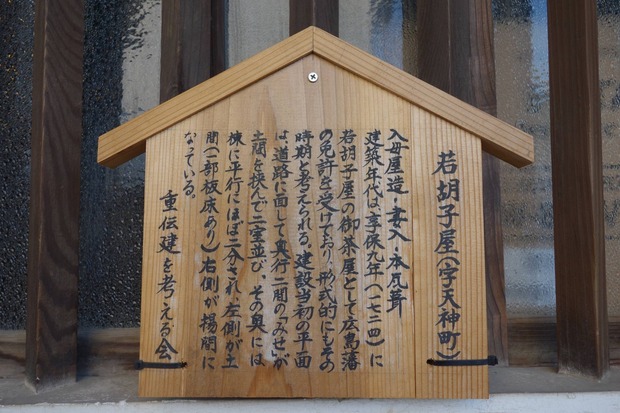 若胡子屋(字天神町)
入母屋造・妻入・本瓦葺
建築年代は享保九年(一七二四)に
若胡子屋の御茶屋として広島藩
の免許を受けており、形式的にもその
時期と考えられる。建設当初の平面
は、道路に面して奥行二間の「みせ」が
土間を挟んで二室並び、その奥には
棟に平行にほぼ二分され、左側が土
間(一部板床あり)右側が揚間に
なっている。
重伝建を考える会